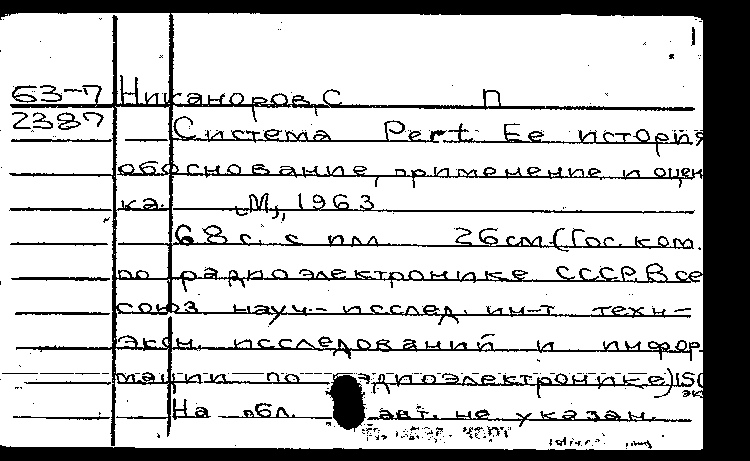 63-7 Никаноров, С П
2387 Система Pert. Ее история
обоснование, применение и оцен
ка. М., 1963
68 с. с илл 26 см (Гос. ком.
по радиоэлектронике СССР. Все
союз науч.- исслед. ин-т техн-
экон. исследований и инфор
мации по радиоэлектронике) 150
На обл. авт. не указан.